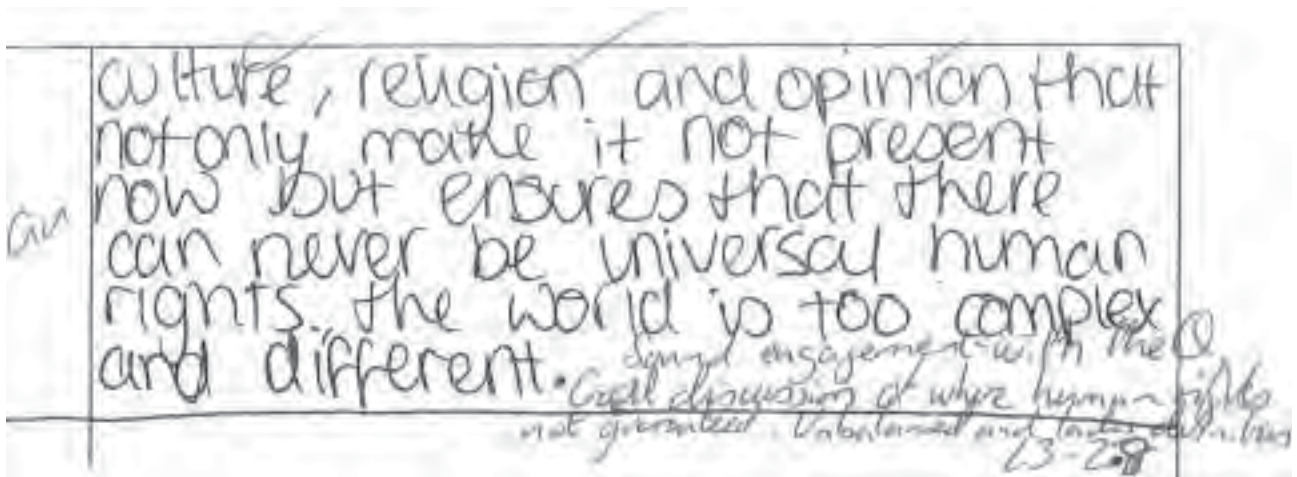 culture, religion and opinion that
not only make it not present
now but ensures that there
can never be universal human
rights. the world is too complex
and different.
Sound engagement with the Q
Good discussion of where human rights
not guaranteed. Unbalanced and